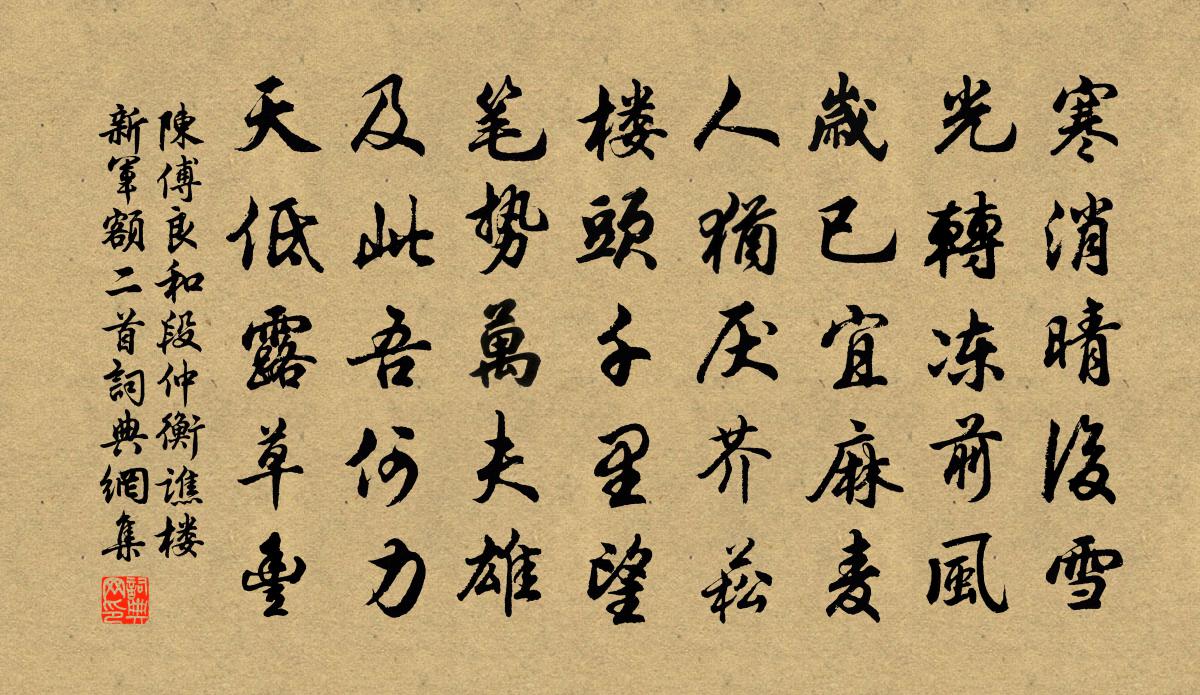 寒消晴後雪
光轉冻前風
歲已宜麻麦
人猶厌芥菘
楼頭千里望
笔势萬夫雄
及此吾何力
天低露草豊
陳傅良和段仲衡譙楼
新軍額二首詞典網集
詞典网印